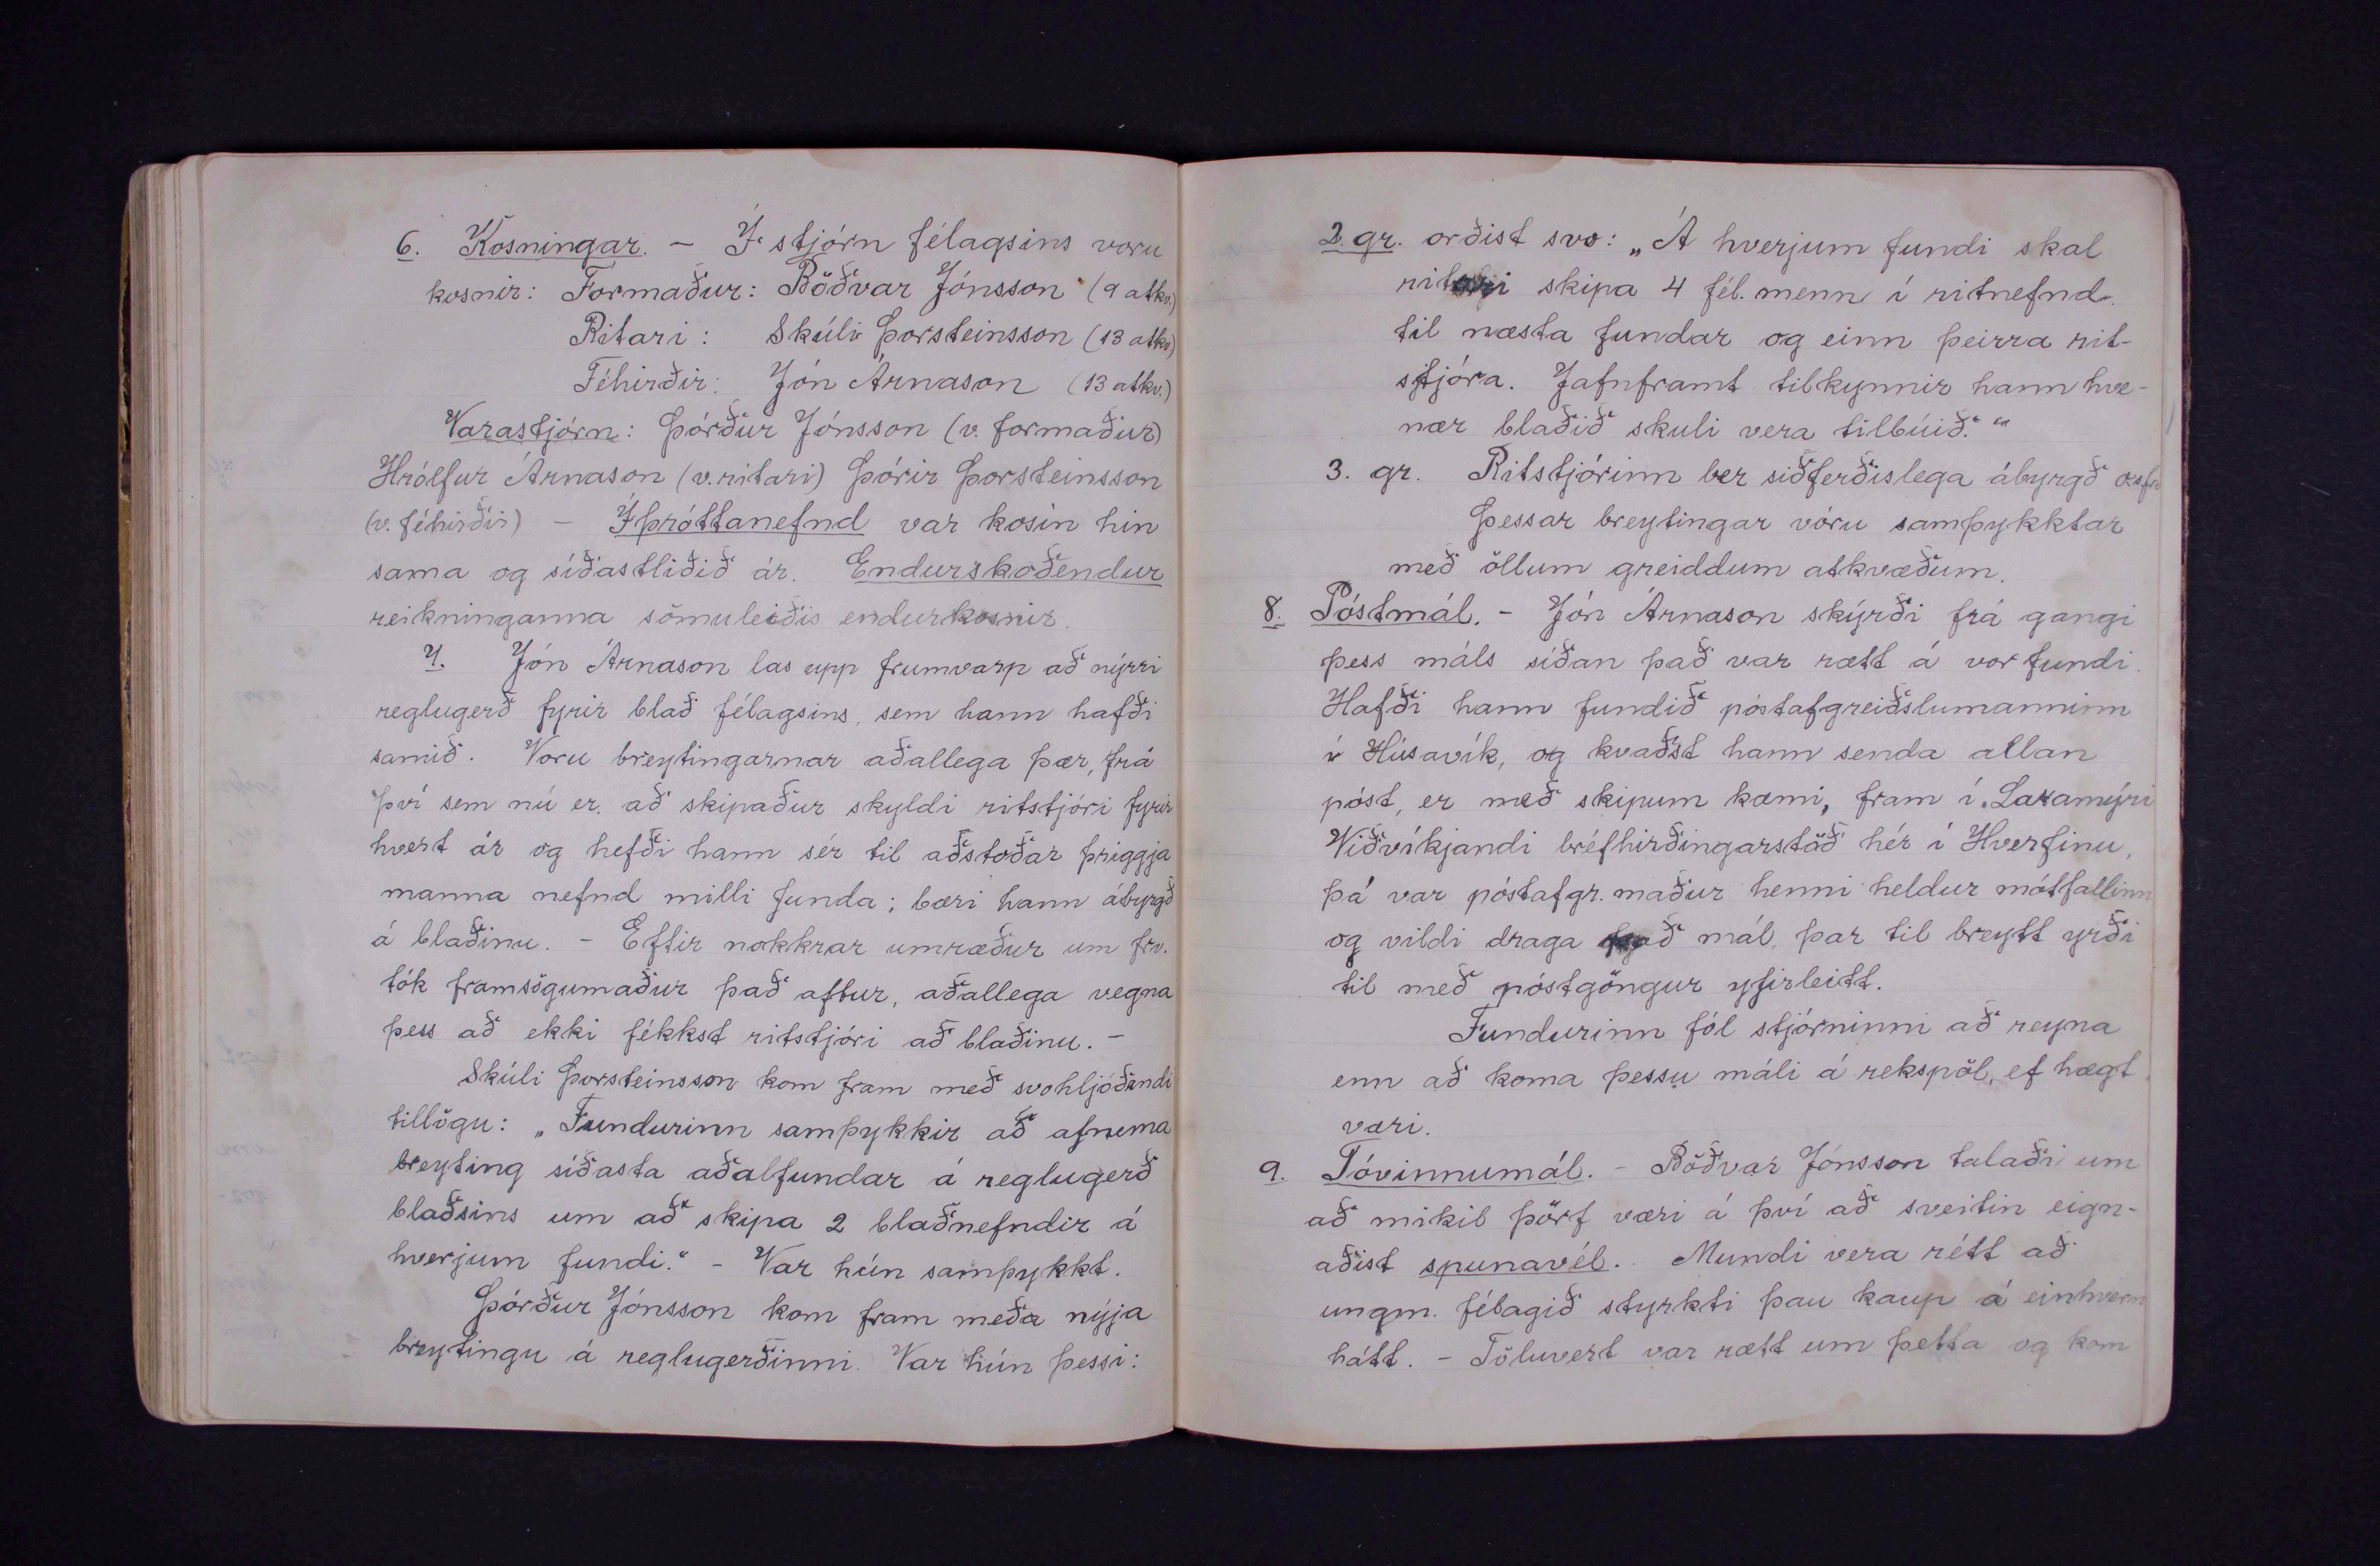 6. Kosningar. - Í stjórn félagsins voru
kosnir: Formaður: Böðvar Jónsson (9 atkv.)
Ritari: Skúli Þorsteinsson (13 atkv)
Féhirðir: Jón Árnason (13 atkv.)
Varastjórn: Þórður Jónsson (v. formaður)
Hrólfur Árnason (v. ritari) Þórir Þorsteinsson
(v. féhirðir) - Íþróttanefnd var kosin hin
sama og síðastliðið ár. Endurskoðendur
reikninganna sömuleiðis endurkosnir.
7. Jón Árnason las upp frumvarp að nýrri
reglugerð fyrir blað félagsins, sem hann hafði
samið. Voru breytingarnar aðallega þær, frá
því sem nú er, að skipaður skyldi ritstjóri fyrir
hvert ár og hefði hann sér til aðstoðar þriggja
manna nefnd milli funda; bæri hann ábyrgð
á blaðinu. - Eftir nokkrar umræður um frv.
tók framsögumaður það aftur, aðallega vegna
þess að ekki fékkst ritstjóri að blaðinu. -
Skúli Þorsteinsson kom fram með svohljóðandi
tillögu: „Fundurinn samþykkir að afnema
breyting síðasta aðalfundar á reglugerð
blaðsins um að skipa 2 blaðnefndir á
hverjum fundi." - Var hún samþykkt.
Þórður Jónsson kom fram með nýja
breytingu á reglugerðinni. Var hún þessi:
2. gr. orðist svo: „Á hverjum fundi skal
ritari skipa 4 fél. menn í ritnefnd
til næsta fundar og einn þeirra rit-
stjóra. Jafnframt tilkynnir hann hve-
nær blaðið skuli vera tilbúið."
3. gr. Ritstjórinn ber siðferðislega ábyrgð osfrv
Þessar breytingar vóru samþykktar
með öllum greiddum atkvæðum.
8. Póstmál. - Jón Árnason skýrði frá gangi
þess máls síðan það var rætt á vorfundi.
Hafði hann fundið póstafgreiðslumanninn
í Húsavík, og kvaðst hann senda allan
póst, er með skipum kæmi, fram í Laxamýri
Viðvíkjandi bréfhirðingarstað hér í Hverfinu,
þá var póstafgr. maður henni heldur mótfallinn
og vildi draga það mál, þar til breytt yrði
til með póstgöngur yfirleitt.
Fundurinn fól stjórninni að reyna
enn að koma þessu máli á rekspöl, ef hægt
væri.
9. Tóvinnumál. - Böðvar Jónsson talaði um
að mikil þörf væri á því að sveitin eign-
aðist spunavél. Mundi vera rétt að
ungm. félagið styrkti þau kaup á einhvern
hátt. - Töluvert var rætt um þetta og kom